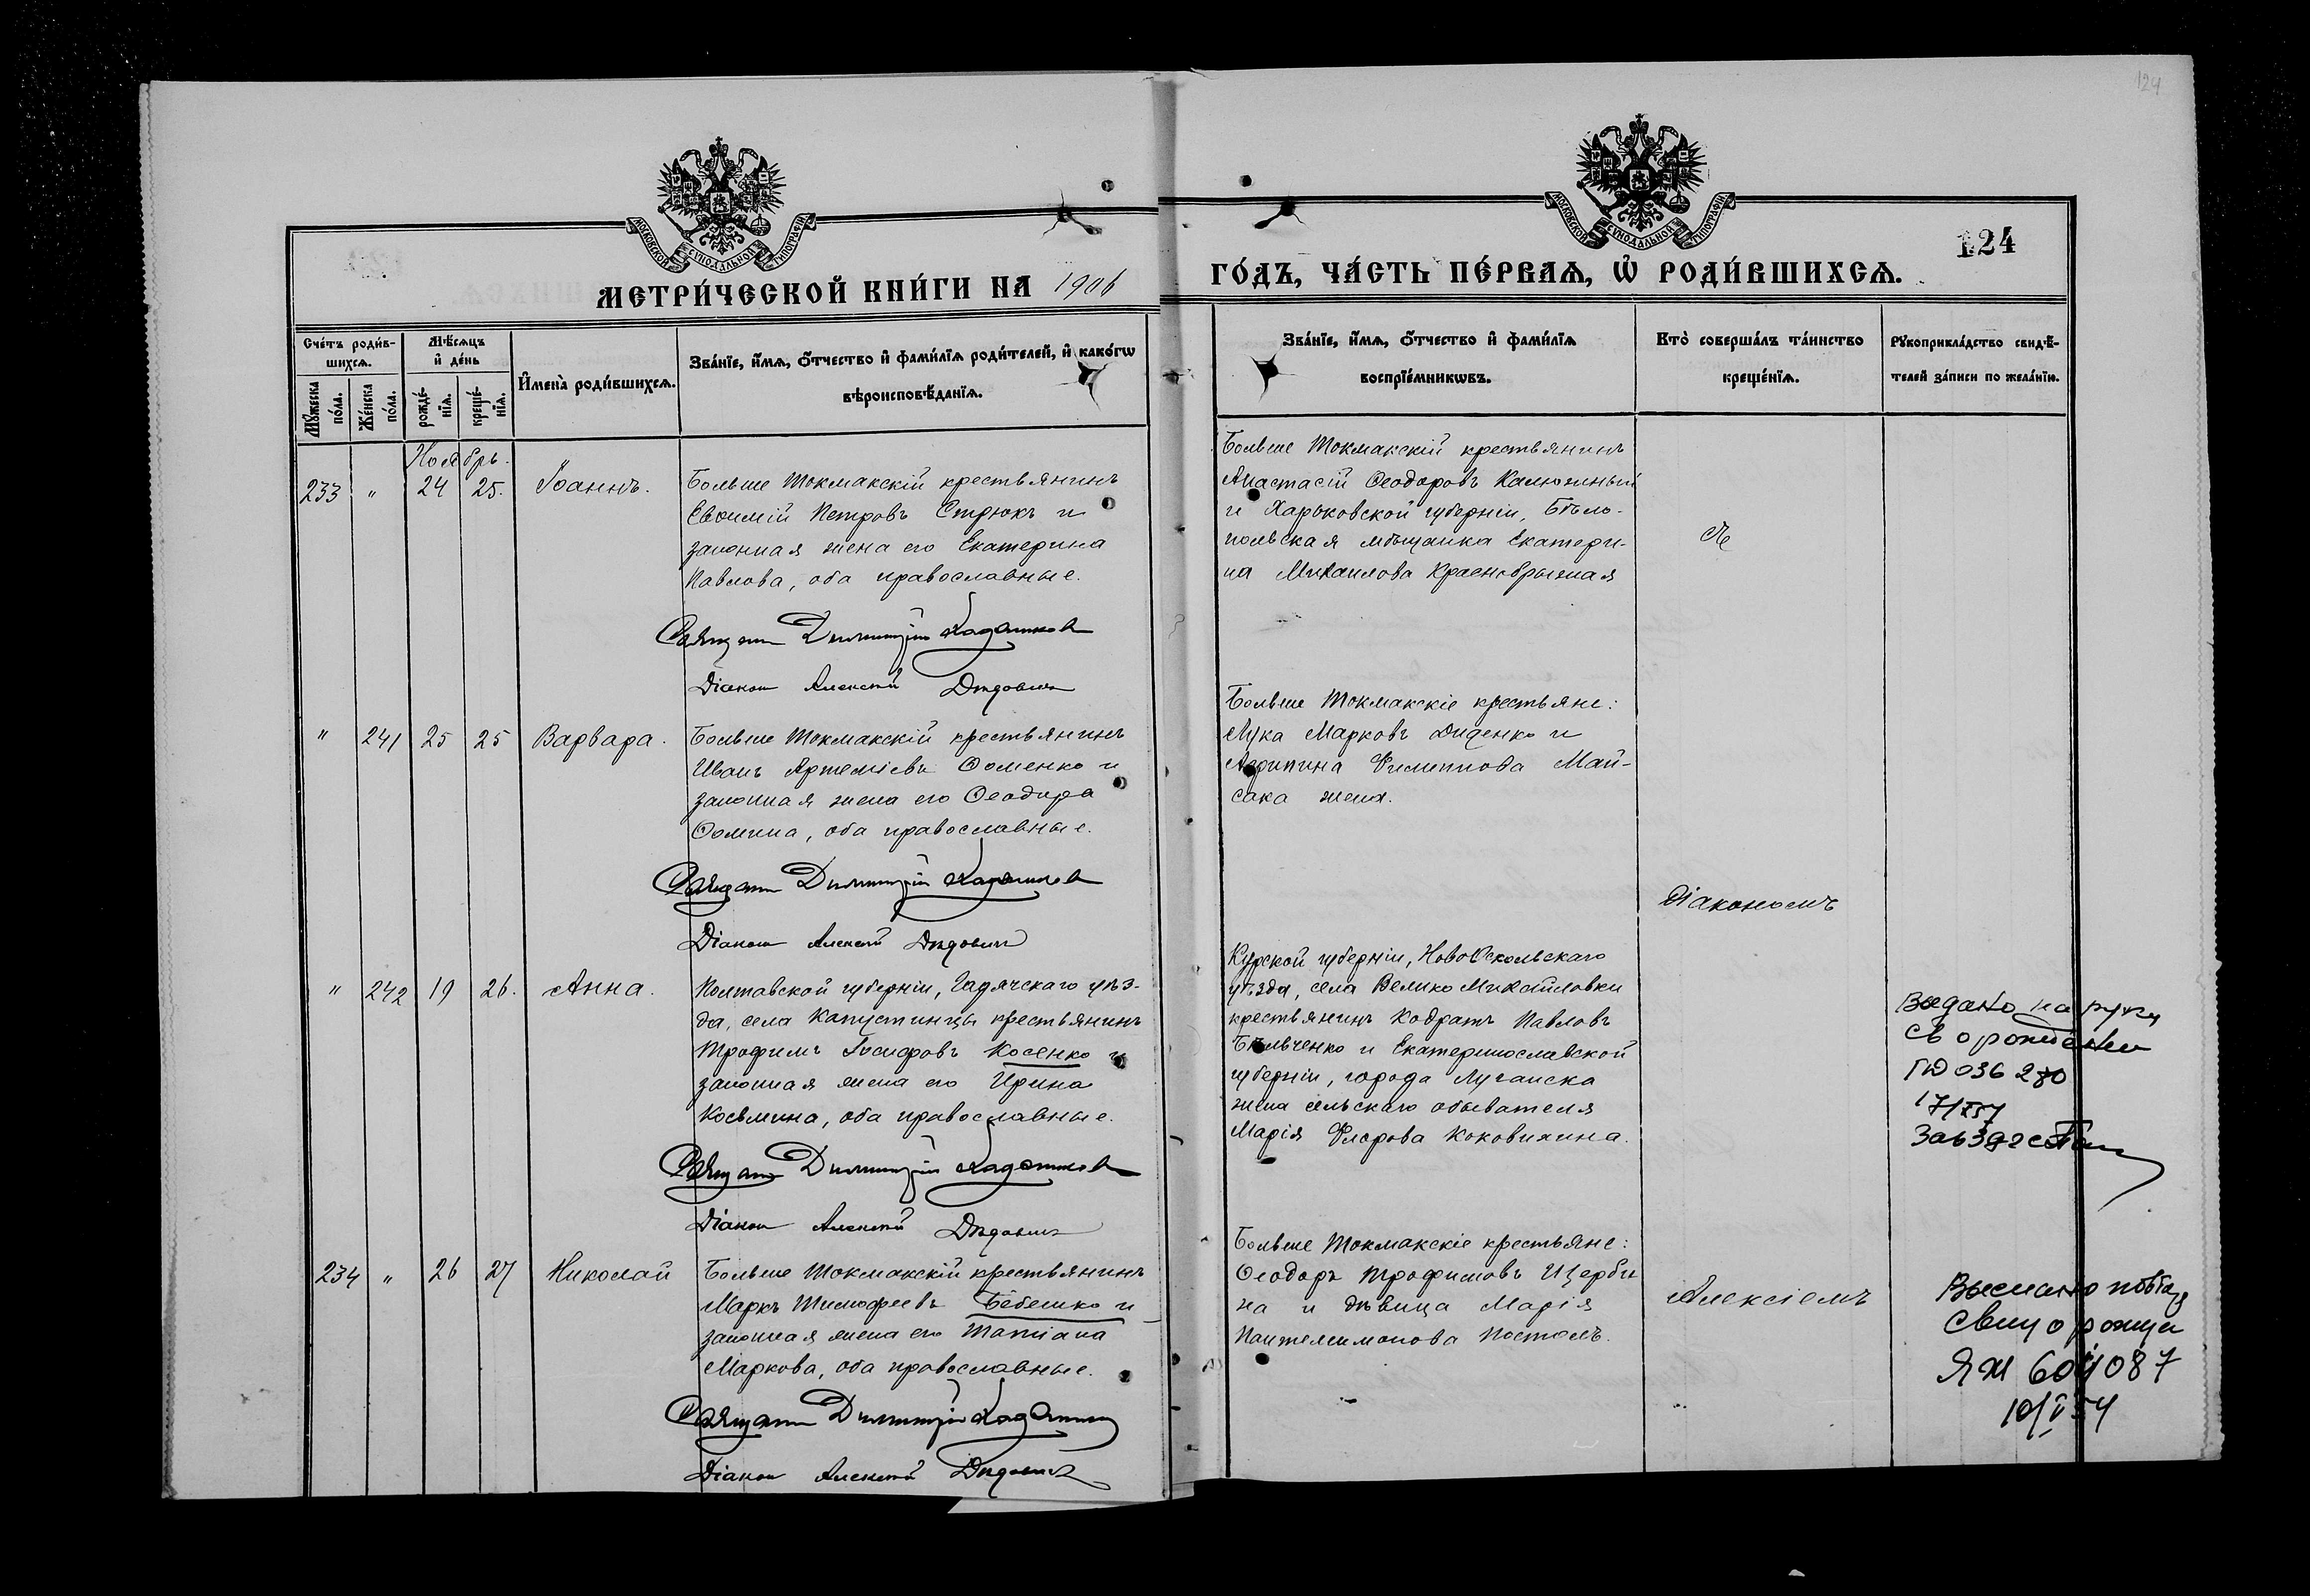 124
МОСКОВСКОЙ СѴНОДАЛЬНОЙ ТИПОГРАФІИ
МОСКОВСКОЙ СѴНОДАЛЬНОЙ ТИПОГРАФІИ
124
МЕТРИ́ЧЕСКОЙ КНИ́ГИ НА 1906
ГО́ДЪ, ЧА́СТЬ ПЕ́РВАѦ, Ѡ РОДИ́ВШИХСѦ.
Сче́тъ роди́в-
шихсѧ.
Мꙋ́жеска
по́ла.
Же́нска
по́ла.
Мѣ́сѧцъ
и де́нь
рожде́-
нїѧ.
креще́-
нїѧ.
Имена̀ роди́вшихсѧ.
Зва́нїе, и́мѧ, ѻ́тчество и фами́лїѧ роди́телей, и како́гѡ
вѣроисповѣ́данїѧ.
Зва́нїе, и́мѧ, ѻ́тчество и фами́лїѧ
воспрїе́мникѡвъ.
Кто̀ соверша́лъ та́инство
креще́нїѧ.
Рꙋкоприкла́дство свидѣ́-
телей за́писи по жела́нїю.
Ноябрь.
233 " 24 25. Іоаннъ.
Больше Токмакскій крестьянинъ
Евѳимій Петровъ Стрюкъ и
законная жена его Екатерина
Павлова, оба православные.
Священ Димитрій
Діакон Алексѣй Дѣдович
Больше Токмакскій крестьянинъ
Анастасій Ѳеодоровъ Калюжный
и Харьковской губерніи, Бѣло-
польская мѣщанка Екатери-
на Михаилова Краснобрыжая
" 241 25 25 Варвара.
Больше Токмакскій крестьянинъ
Иванъ Артеміевъ Ѳоменко и
законная жена его Ѳеодора
Ѳомина, оба православные.
Священ Димитрій
Діакон Алексѣй Дѣдович
Больше Токмакскіе крестьяне:
Лука Марковъ Диденко и
Агрипина Филиппова Май-
сака жена.
Діакономъ
" 242 19 26. Анна.
Полтавской губерніи, Гадячскаго уѣз-
да, села Капустинцы крестьянинъ
Трофимъ Іосифовъ Косенко и
законная жена его Ирина
Косьмина, оба православные.
Священ Димитрій
Діакон Алексѣй Дѣдович
Курской губерніи, НовоОскольскаго
уѣзда, села Велико Михайловки
крестьянинъ Кодратъ Павловъ
Бѣльченко и Екатеринославской
губерніи, города Луганска
жена сельскаго обывателя
Марія Флорова Коковихина.
Выдано на руки
св о рождении
036 280
234 " 26 27 Николай
Больше Токмакскій крестьянинъ
Маркъ Тимофеевъ Бебешко и
законная жена его Татіана
Маркова, оба православные.
Священ Димитрій
Діакон Алексѣй Дѣдович
Больше Токмакскіе крестьяне:
Ѳеодоръ Трофимовъ Щерби
на и дѣвица Марія
Пантелимонова Постолъ.
Алексіемъ
Выслано
о рожде
ЯЖ 604087
10/V 54